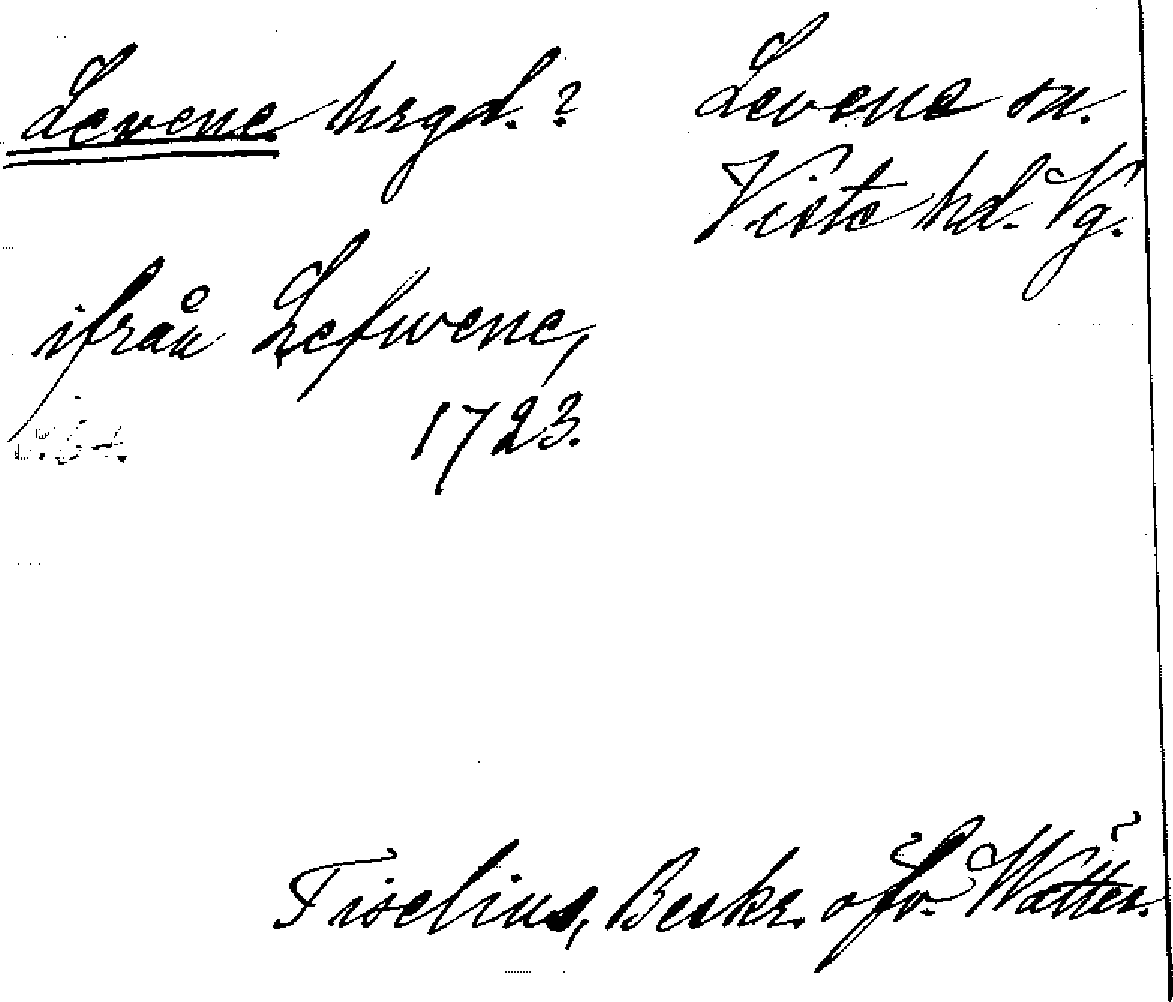 Levene hrgd.? Levene sn.
Viste hd. Vg.
ifrån Lefwene,
1723.
Tiselius, Beskr. öfv. Wätter.